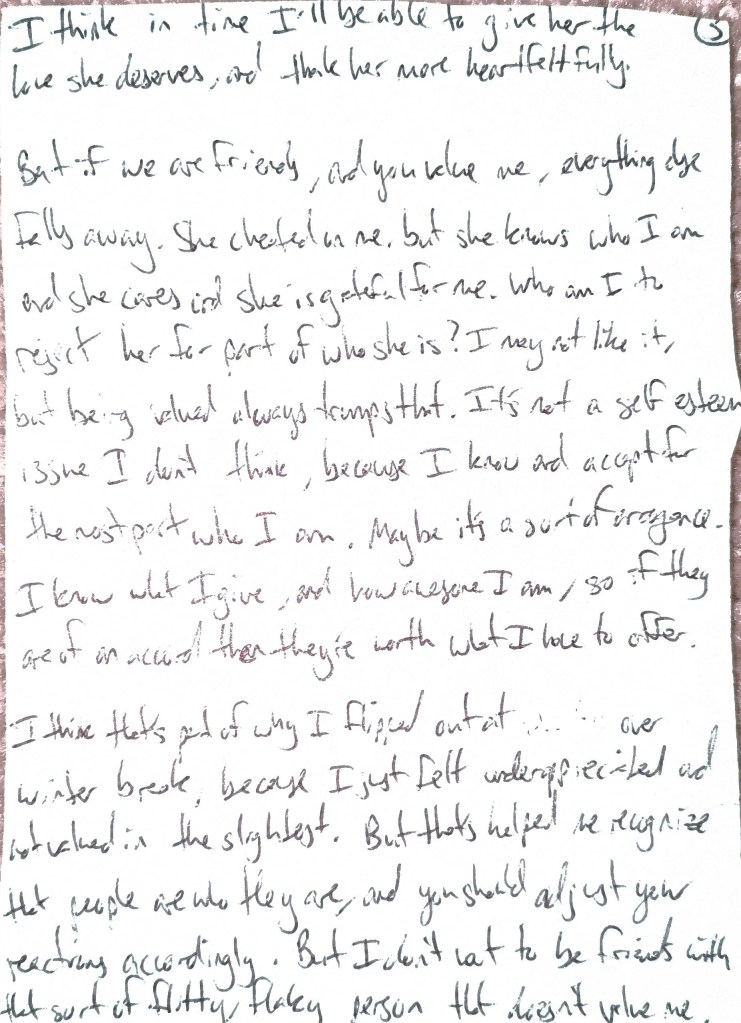 I think in time I'll be able to give her the 3
love she deserves, and thank her more heartfeltfully.
But if we are friends, and you value me, everything else
falls away. She cheated on me, but she knows who I am
and she cares and she is grateful for me. Who am I to
reject her for part of who she is? I may not like it,
but being valued always trumps that. It's not a self esteem
issue I don't think, because I know and accept for
the most part who I am. Maybe it's a sort of arrogance.
I know what I give, and how awesome I am, so if they
are of an accord then they're worth what I have to offer.
I think that's part of why I flipped out at over
winter break, because I just felt underappreciated and
not valued in the slightest. But that's helped me recognize
that people are who they are, and you should adjust your
reactions accordingly. But I don't want to be friends with
that sort of flitty, flaky person that doesn't value me.